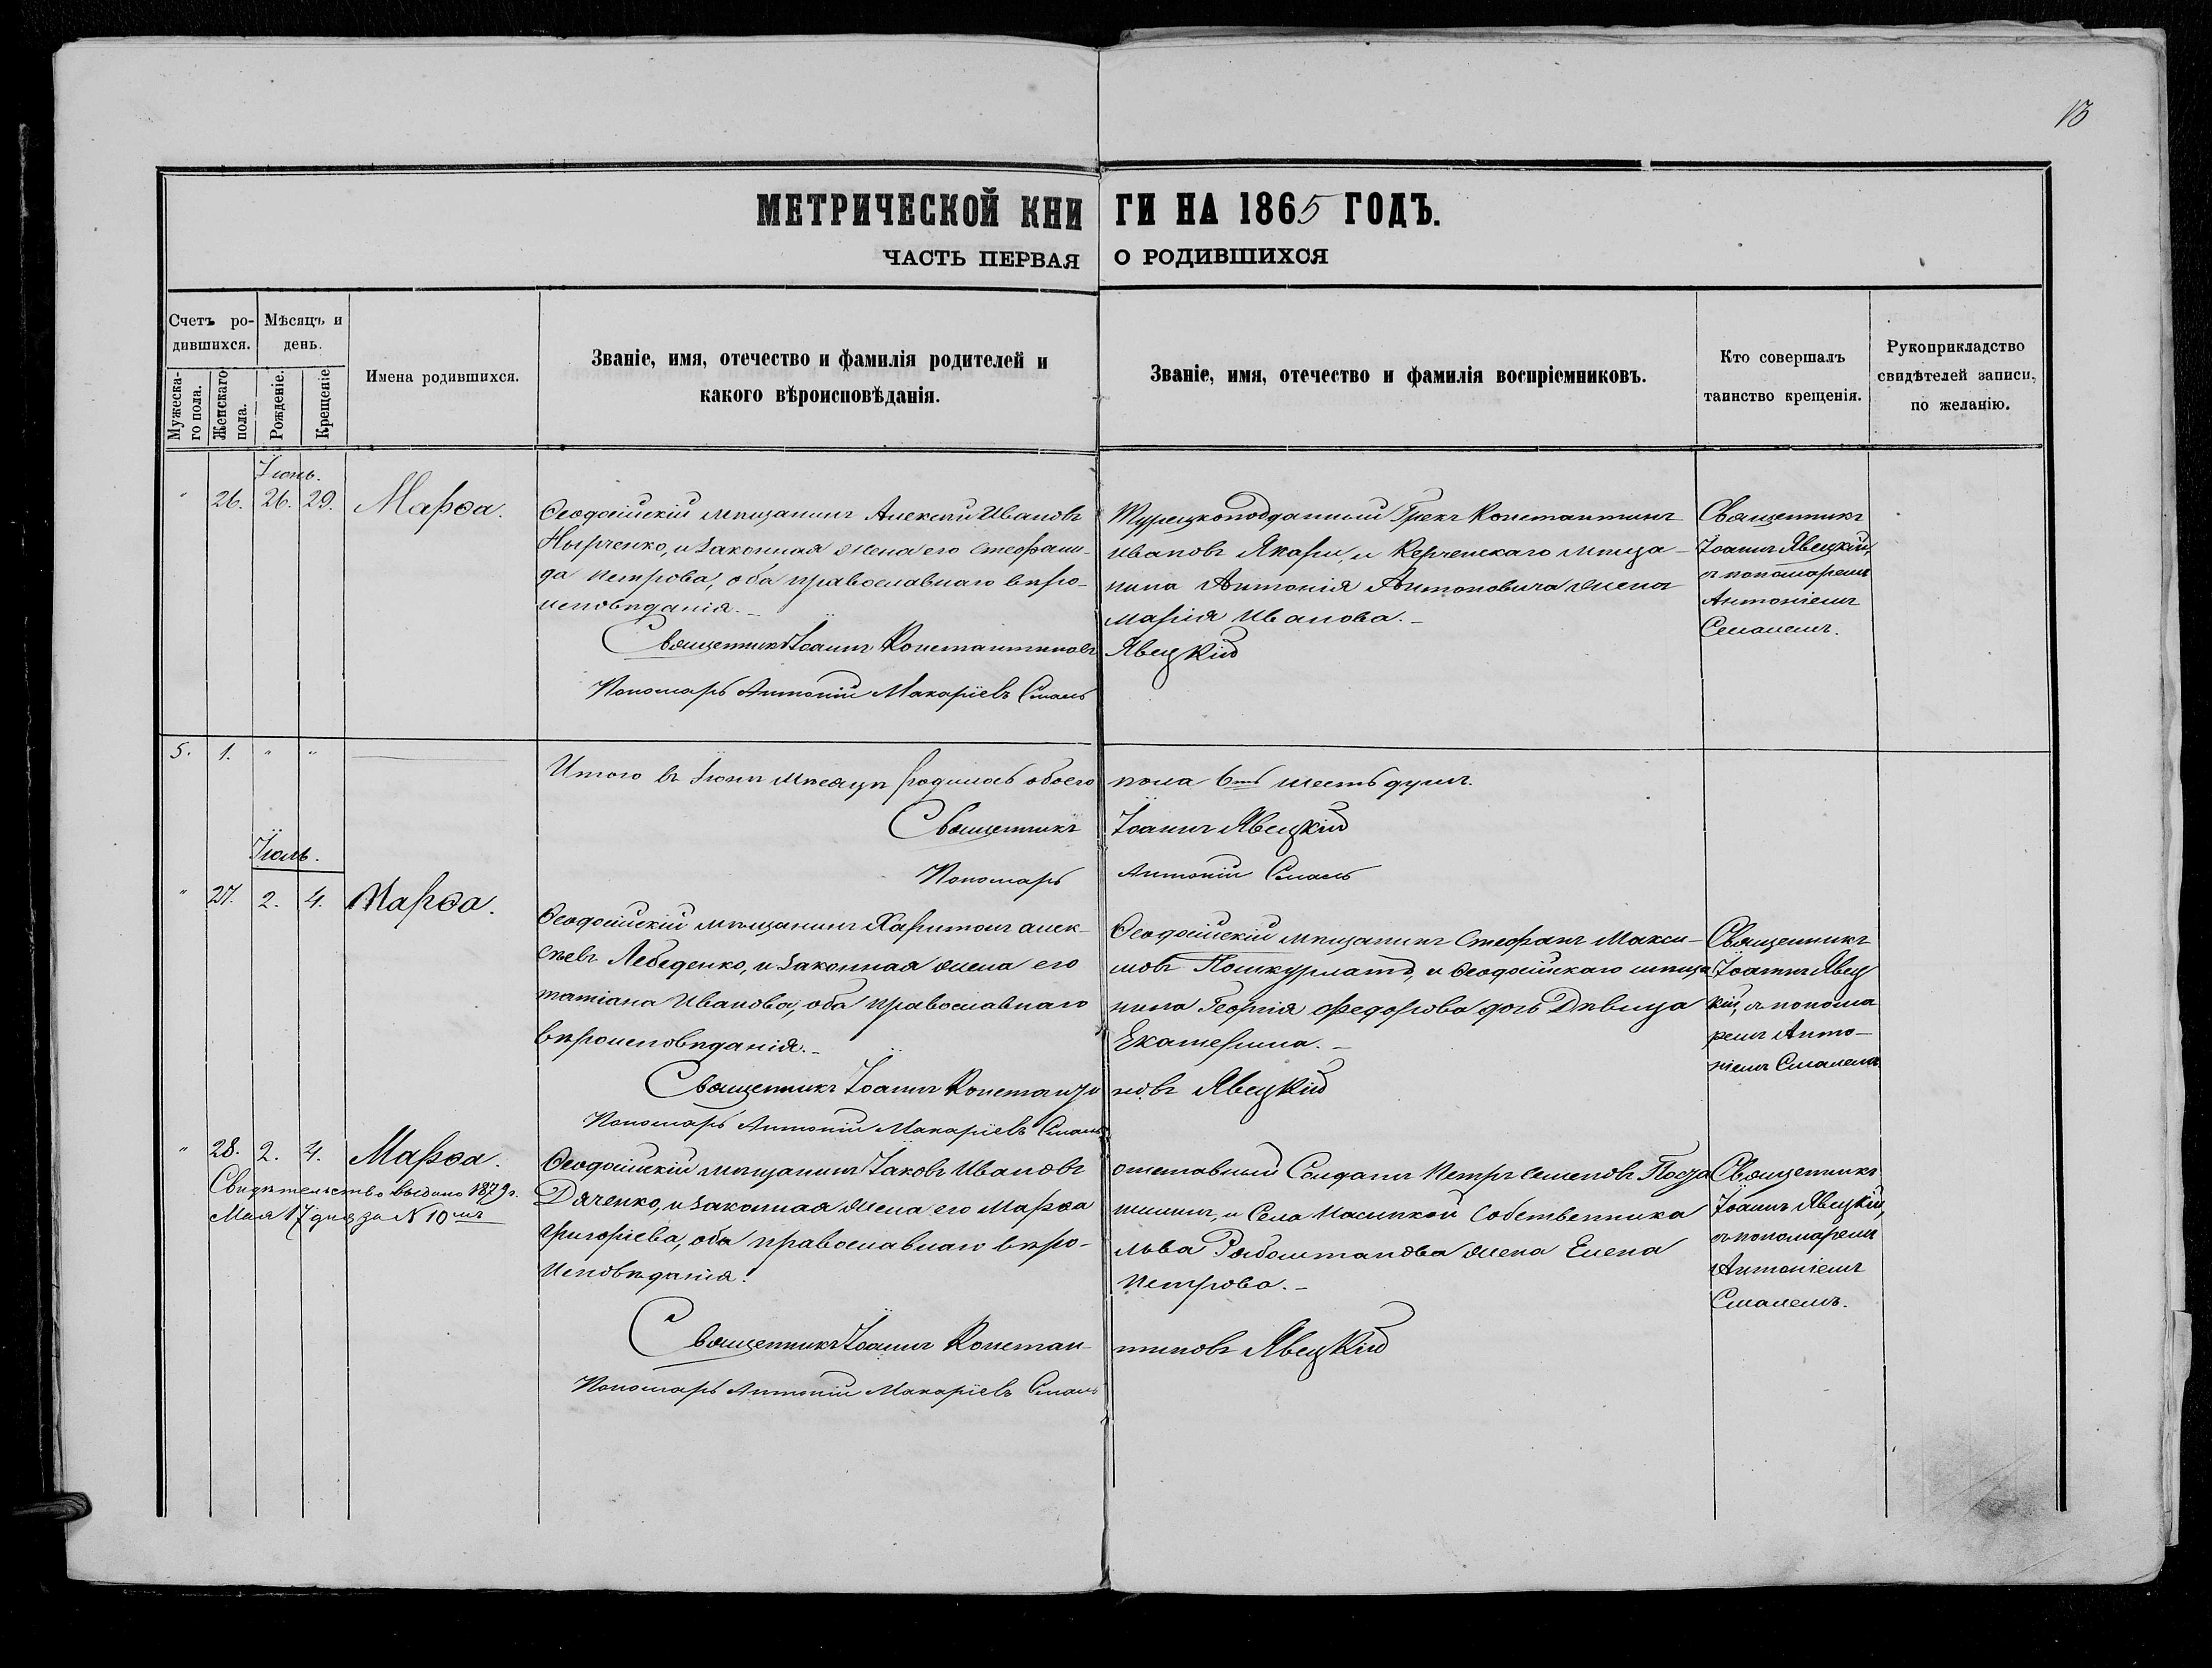 13
МЕТРИЧЕСКОЙ КНИГИ НА 1865 ГОДЪ.
ЧАСТЬ ПЕРВАЯ О РОДИВШИХСЯ
Счетъ родившихся.
Мужескаго пола.
Женскаго пола.
Мѣсяцъ и день.
Рожденіе.
Крещеніе
Имена родившихся.
Званіе, имя, отечество и фамилія родителей и
какого вѣроисповѣданія.
Званіе, имя, отечество и фамилія воспріемниковъ.
Кто совершалъ
таинство крещенія.
Рукоприкладство
свидѣтелей записи,
по желанію.
Іюнь.
" 26. 26. 29. Марѳа.
Ѳеодосійскій мѣщанинъ Алексѣй Ивановъ
Нырченко, и законная жена его Стефани-
да Петрова, оба православнаго вѣро-
исповѣданія.-
Турецкоподданный Грекъ Константинъ
Ивановъ Якари, и Керченскаго мѣща-
нина Антонія Антоновича жена
Марія Иванова.-
Священникъ
Іоаннъ Явецкій,
съ пономаремъ
Антоніемъ
Смалемъ.
Священникъ Іоаннъ Константиновъ Явецкій
Пономарь Антоній Макаріевъ Смаль
5. 1. " "
Итого въ Іюнѣ мѣсяцѣ родилось обоего пола 6ть шесть душъ.
Священникъ Іоаннъ Явецкій
Пономарь Антоній Смаль
Іюль.
" 27. 2. 4. Марѳа.
Ѳеодосійскій мѣщанинъ Харитонъ Алек-
сѣевъ Лебеденко, и законная жена его
Татіана Иванова, оба православнаго
вѣроисповѣданія.-
Ѳеодосійскій мѣщанинъ Стефанъ Макси-
мовъ и Ѳеодосійскаго мѣща
нина Георгія Федорова дочь Дѣвица
Екатерина.-
Священникъ
Іоаннъ Явец
кій, съ понома
ремъ Анто-
ніемъ Смалемъ
Священникъ Іоаннъ Константиновъ Явецкій
Пономарь Антоній Макаріевъ Смаль
" 28. 2. 4. Марѳа.
Свидѣтельство выдано 1879 г.
Мая 17 дня за N 10мъ
Ѳеодосійскій мѣщанинъ Іаковъ Ивановъ
Дяченко, и законная жена его Марѳа
Григоріева, оба православнаго вѣро-
исповѣданія.
отставный Солдатъ Петръ Семеновъ
и Села Насыпкой Собственника
Льва жена Елена
Петрова.-
Священникъ
Іоаннъ Явецкій,
съ пономаремъ
Антоніемъ
Смалемъ.
Священникъ Іоаннъ Константиновъ Явецкій
Пономарь Антоній Макаріевъ Смаль